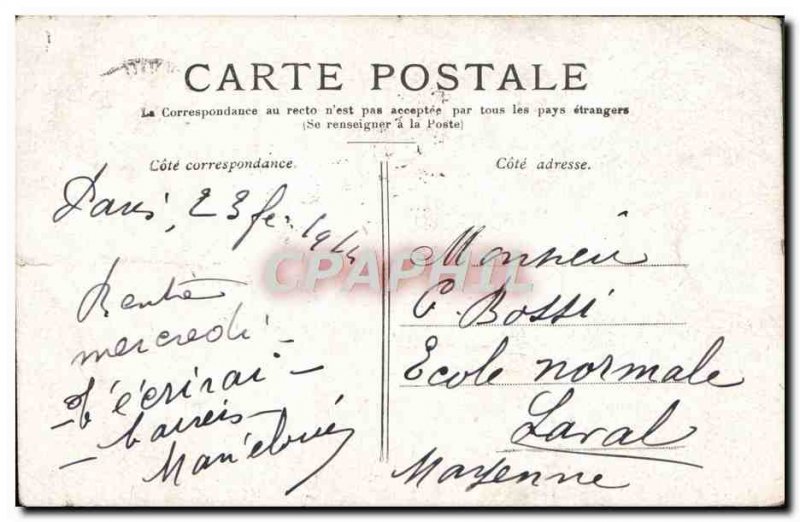 CARTE POSTALE
La Correspondance au recto n'est pas acceptée par tous les pays étrangers
(Se renseigner à la Poste)
Côté correspondance.
Paris, 23 fev 1914
Rentré
mercredi –
– t'écrirai –
– baisers –
Côté adresse.
Monsieur
C. Bossi
Ecole normale
Laval
Mayenne
CPAPHIL